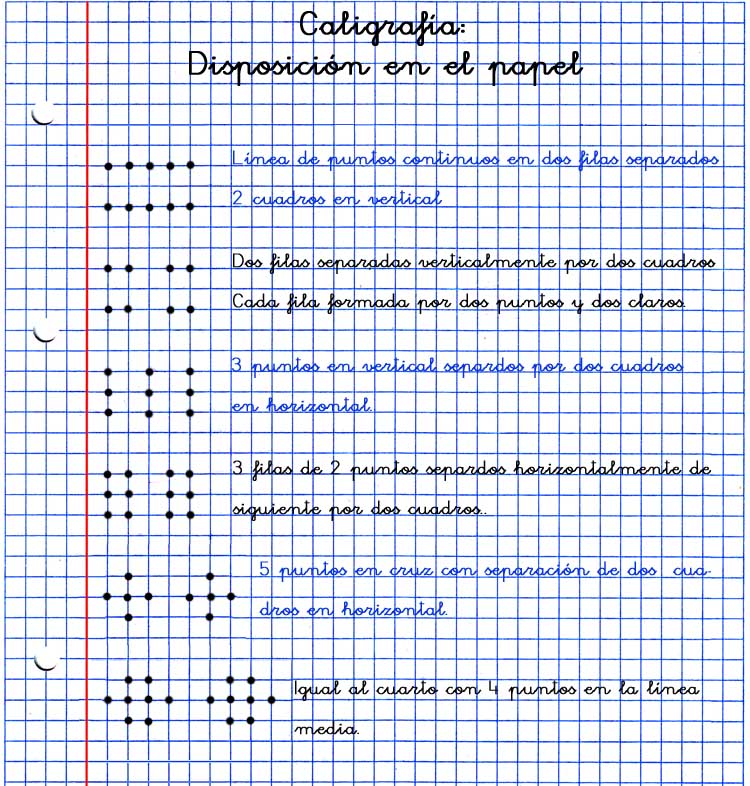 Caligrafía:
Disposición en el papel
Línea de puntos continuos en dos filas separados
2 cuadros en vertical
Dos filas separadas verticalmente por dos cuadros
Cada fila formada por dos puntos y dos claros.
3 puntos en vertical separdos por dos cuadros
en horizontal.
3 filas de 2 puntos separdos horizontalmente de
siguiente por dos cuadros..
5 puntos en cruz con separación de dos cua-
dros en horizontal.
Igual al cuarto con 4 puntos en la línea
media.